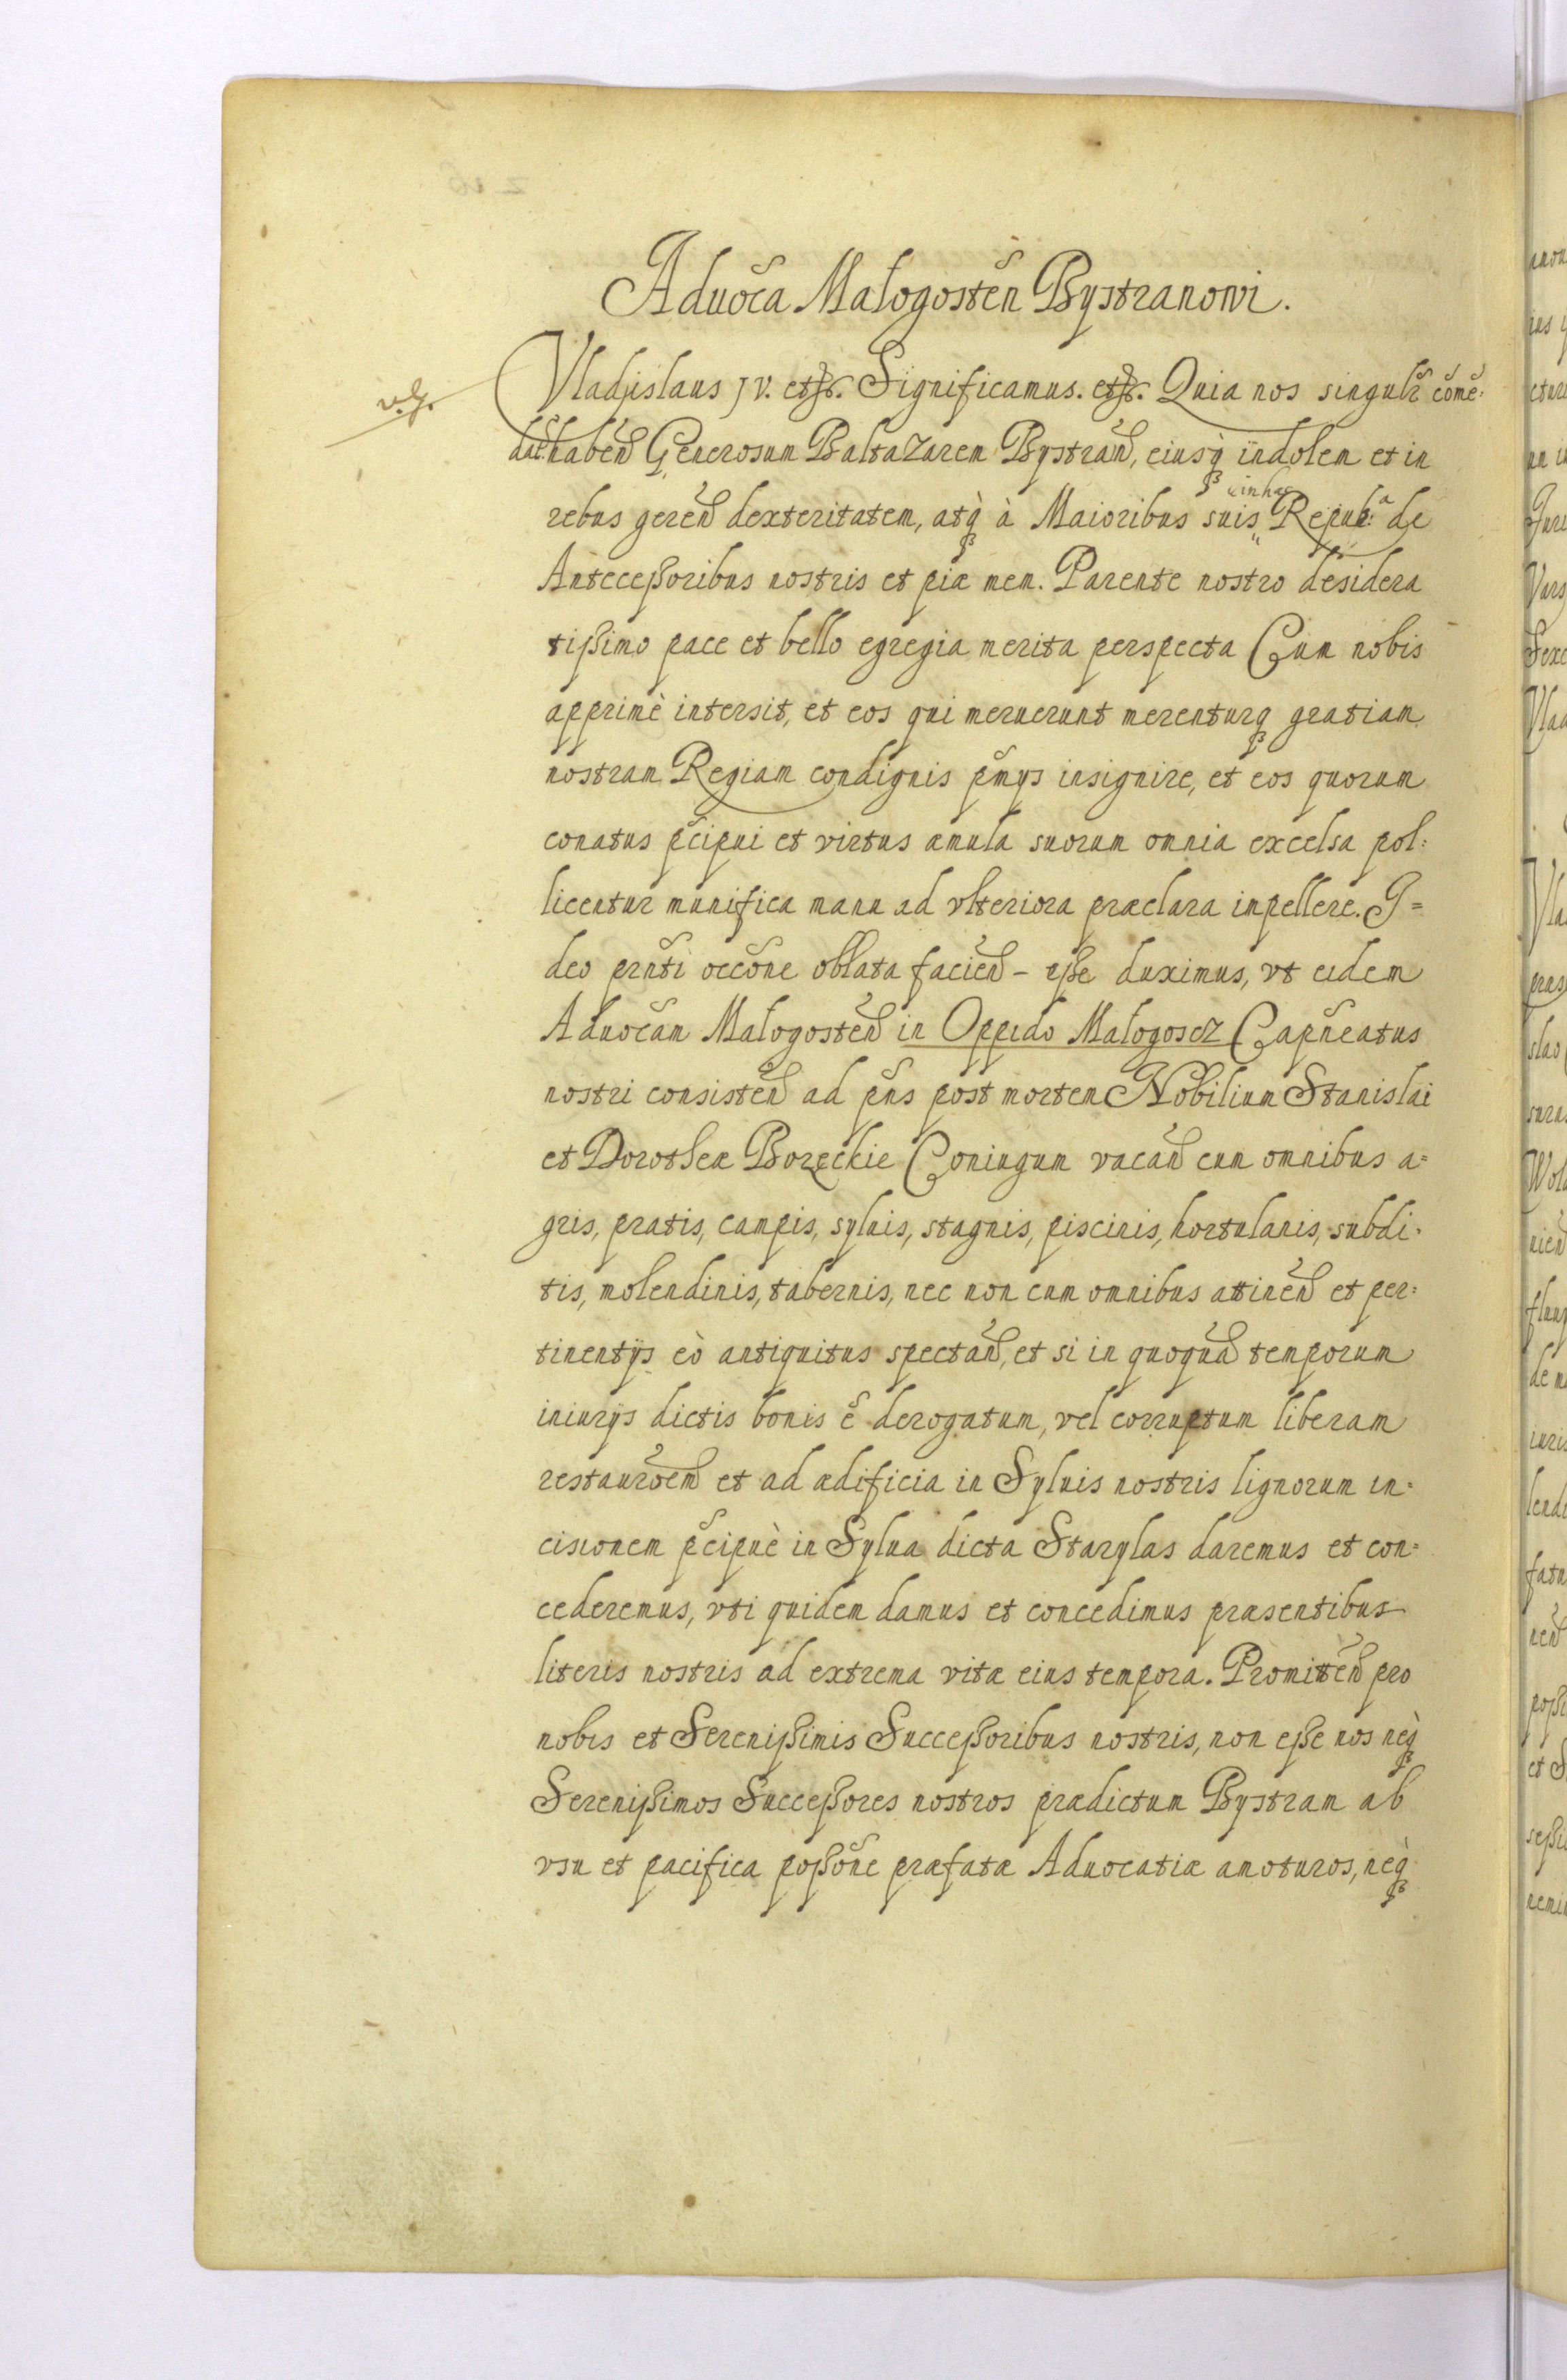 Aduoca͠ Malogosten͠ Bystranowi.
v. g.
Vladislaus IV. etc. Significamus. etc. Quia nos singulr͠ com͠e͠:
dat: haben͠ Generosum Baltazarem Bystran͠, eiusq̀ꝫ indolem et in
rebus geren͠ dexteritatem, atq̀ꝫ à Maioribus suis in hac Repub:ᵃ de
Antecessoribus nostris et piæ mem. Parente nostro desidera
tissimo pace et bello egregia merita perspecta Cum nobis
apprimè intersit, et eos qui meruerunt merenturqꝫ gratiam
nostram Regiam condignis pm͠ys insignire, et eos quorum
conatus pc͠ipui et virtus æmula suorum omnia excelsa pol:
licentur munifica manu ad vlteriora præclara inpellere. I=
deo prn͠ti occo͠ne oblata facien͠ – esse duximus, vt eidem
Aduoca͠m Malogosten͠ in Oppido Malogoscz Capn͠eatus
nostri consisten͠ ad pn͠s post mortem Nobilium Stanislai
et Dorotheæ Boreckie Coniugum vacan͠ cum omnibus a=
gris, pratis, campis, syluis, stagnis, piscinis, hortulanis, subdi:
tis, molendinis, tabernis, nec non cum omnibus attinen͠ et per:
tinentÿs eò antiquitus spectan͠, et si in quoqua͠ temporum
iniurÿs dictis bonis e͠ derogatum, vel corruptum liberam
restauro͠em et ad ædificia in Syluis nostris lignorum in:
cisionem pc͠ipuè in Sylua dicta Starylas daremus et con=
cederemus, vti quidem damus et concedimus præsentibus
literis nostris ad extrema vitæ eius tempora. Promitten͠ pro
nobis et Serenissimis Successoribus nostris, non esse nos neq̀ꝫ
Serenissimos Successores nostros prædictum Bystram ab
vsu et pacifica posso͠ne præfatæ Aduocatiæ amoturos, neq̀ꝫ